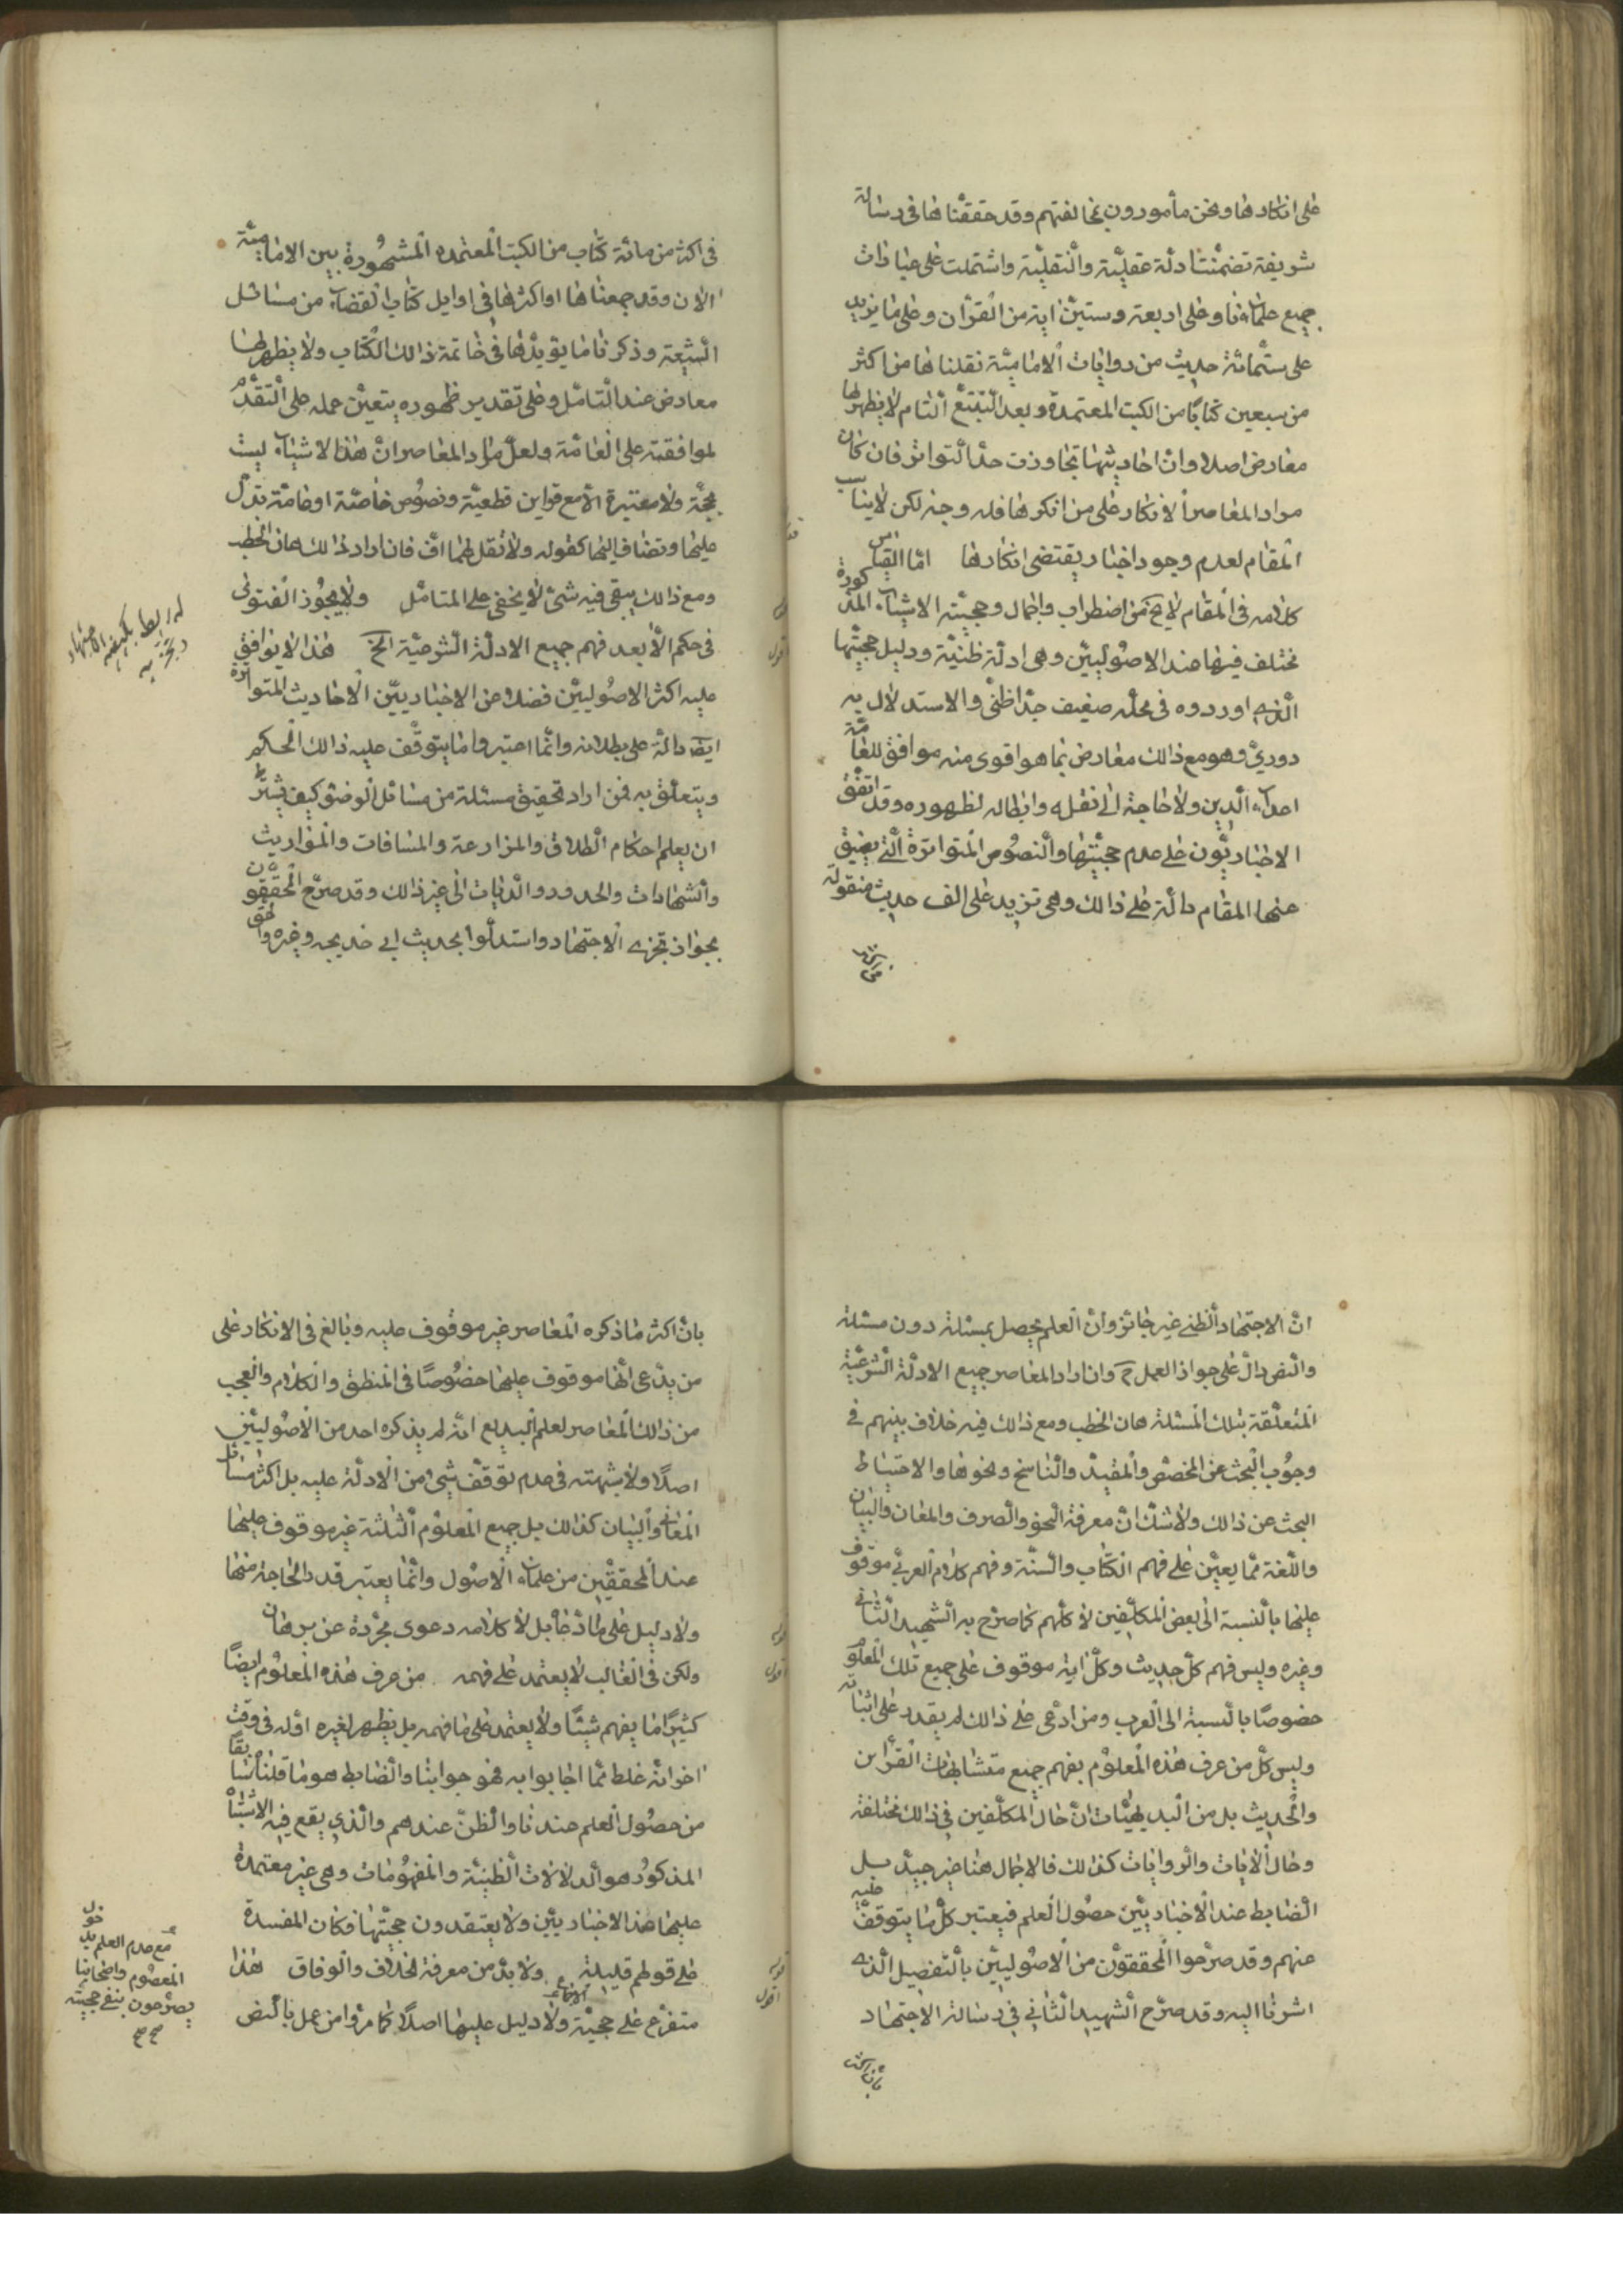 على انكارها ونحن مأمورون بمخالفتهم وقد حققناها في رسالة
شريفة تضمنت ادلة عقليّة والنقليّة واشتملت على عبارات
جميع علمائنا وعلى اربعة وستين اية من القرآن وعلى ما يزيد
على ستّمائة حديث من روايات الاماميّة نقلناها من اكثر
من سبعين كتابًا من الكتب المعتمدة وبعد التتبّع التام لا يظهر لها
معارض اصلا وان احاديثها تجاوزت حدّ التواتر فان كان
مراد المعاصر الانكار على من انكرها فله وجه لكن لا يناسب
المقام لعدم وجود اخبار يقتضى انكارها امّا القياس
كلامه في المقام لا يخ من اضطراب واجمال وحجيّته الاشياء المذكورة
مختلف فيها عند الاصوليّين وهى ادلّة ظنيّة ودليل حجيّتها
الّذى اوردوه في محلّه ضعيف جدّا ظنّى والاستدلال به
دوريّ وهو مع ذالك معارض بما هو اقوى منه موافق للعامّة
اعداء الدين ولا حاجة الى نقله وابطاله لظهوره وقد اتفق
الاخباريّون على عدم حجيّتها والنصوص المتواترة الّتي يضيق
عنها المقام دالّة على ذالك وهى تزيد على الف حديث منقولة
في اكثر من مائة كتاب من الكتب المعتمده المشهورة بين الاماميّة
الان وقد جمعناها او اكثرها في اوايل كتاب القضاء من مسائل
الشيعة وذكرنا ما يؤيّدها في خاتمة ذالك الكتاب ولا يظهر لها
معارض عند التأمّل وعلى تقدير ظهوره يتعيّن حمله على التقدّم
لموافقته على العامّة ولعلّ مراد المعاصر انّ هذا الاشياء ليست
بحجّة ولا معتبرة الاّ مع قراين قطعيّة ونصوص خاصّة او عامّة تدلّ
عليها وتضاف اليها كقوله ولا تقل لهما افّ فان اراد ذالك هان الخطب
ومع ذالك يبقى فيه شئ لا يخفى على المتأمّل ولا يجوز الفتوى
في حكم الاّ بعد فهم جميع الادلّة الشرعيّة الخ هذا لا يوافق
عليه اكثر الاصوليّين فضلا عن الاخباريّين الاحاديث المتواترة
ايضا دالّة على بطلانه وانّما اعتبروا ما يتوقّف عليه ذالك الحكم
ويتعلّق به فمن اراد تحقيق مسئلة من مسائل الوضوء كيف يشترط
ان يعلم احكام الطلاق والمزارعة والمساقات والمواريث
والشهادات والحدود والديات الى غير ذالك وقد صرّح المحقّقون
بجواز تجزى الاجتهاد واستدلّوا بحديث ابى خديجه وغيره والحق
انّ الاجتهاد الظنى غير جائز وانّ العلم يحصل بمسئلة دون مسئلة
والنص دالّ على جواز العمل ح وان اراد المعاصر جميع الادلّة الشرعيّة
المتعلّقة بتلك المسئلة هان الخطب ومع ذالك فيه خلاف بينهم في
وجوب البحث عن المخصّص والمقيّد والناسخ ونحوها والاحتياط
البحث عن ذالك ولا شك انّ معرفة النحو والصرف والمعان والبيان
واللّغة ممّا يعيّن على فهم الكتاب والسنّة وفهم كلام العربى موقوف
عليها بالنسبة الى بعض المكلّفين لا كلّهم كما صرّح به الشهيد الثانى
وغيره وليس فهم كلّ حديث وكلّ اية موقوف على جميع تلك العلوم
خصوصًا بالنسبة الى العرب ومن ادّعى على ذالك لم يقدر على اثباته
وليس كلّ من عرف هذه العلوم يفهم جميع متشابهات القرآن
والحديث بل من البديهيّات انّ حال المكلّفين في ذالك مختلفة
وحال الايات والروايات كذالك فالاجمال هنا غير جيّد بل
الضابط عند الاخباريّين حصول العلم فيعتبر كلّ ما يتوقّف عليه
عنهم وقد صرّحوا المحققون من الاصوليّين بالتفصيل الّذى
اشرنا اليه وقد صرّح الشهيد الثاني في رسالة الاجتهاد
بانّ اكثر
بانّ اكثر ما ذكره المعاصر غير موقوف عليه وبالغ في الانكار على
من يدّعى انّها موقوف عليها خصوصًا في المنطق والكلام والعجب
من ذالك المعاصر لعلم البديع انّه لم يذكره احد من الاصوليّين
اصلًا ولا شبهته في عدم توقّف شئ من الادلّة عليه بل اكثر مسائل
المعانى والبيان كذالك بل جميع العلوم الثلثة غير موقوف عليها
عند المحققين من علماء الاصول وانّما يعتبر قدر الحاجة منها
ولا دليل على ما ادّعاه بل لا كلامه دعوى مجرّدة عن برهان
ولكن في الغالب لا يعتمد على فهمه من عرف هذه العلوم ايضًا
كثيرًا ما يفهم شيئًا ولا يعتمد على ما فهمه بل يظهر لغيره اوله في وقت
اخر انّه غلط ممّا اجابوا به فهو جوابنا والضابط هو ما قلنا سابقا
من حصول العلم عندنا والظنّ عندهم والّذي يقع فيه الاشتباه
المذكور هو الدلالات الظنيّة والمفهومات وهى غير معتمدة
عليها عند الاخباريّين ولا يعتقدون حجيّتها فكان المفسدة
على قولهم قليلة ولا بدّ من معرفة الخلاف والوفاق هذا
متفرّع على حجيّة الاجماع ولا دليل عليها اصلًا كما مرّ وامن عمل بالنصّ
مع عدم العلم
المعصوم واصحابنا
يصرّحون بنفى حجيّته
صح صح